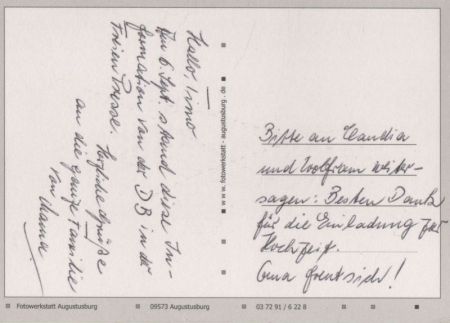 Hallo, Timo
Am 6. Sept. stand diese In-
formation von der DB in der
Freien Presse.
Herzliche Grüße
an die ganze Familie
von
www.fotowerkstatt-augustusburg.de
Bitte an Claudia
und Wolfram weiter-
sagen: Besten Dank
für die Einladung zur
Hochzeit.
Oma freut sich!
Fotowerkstatt Augustusburg
09573 Augustusburg
03 72 91 / 6 22 8